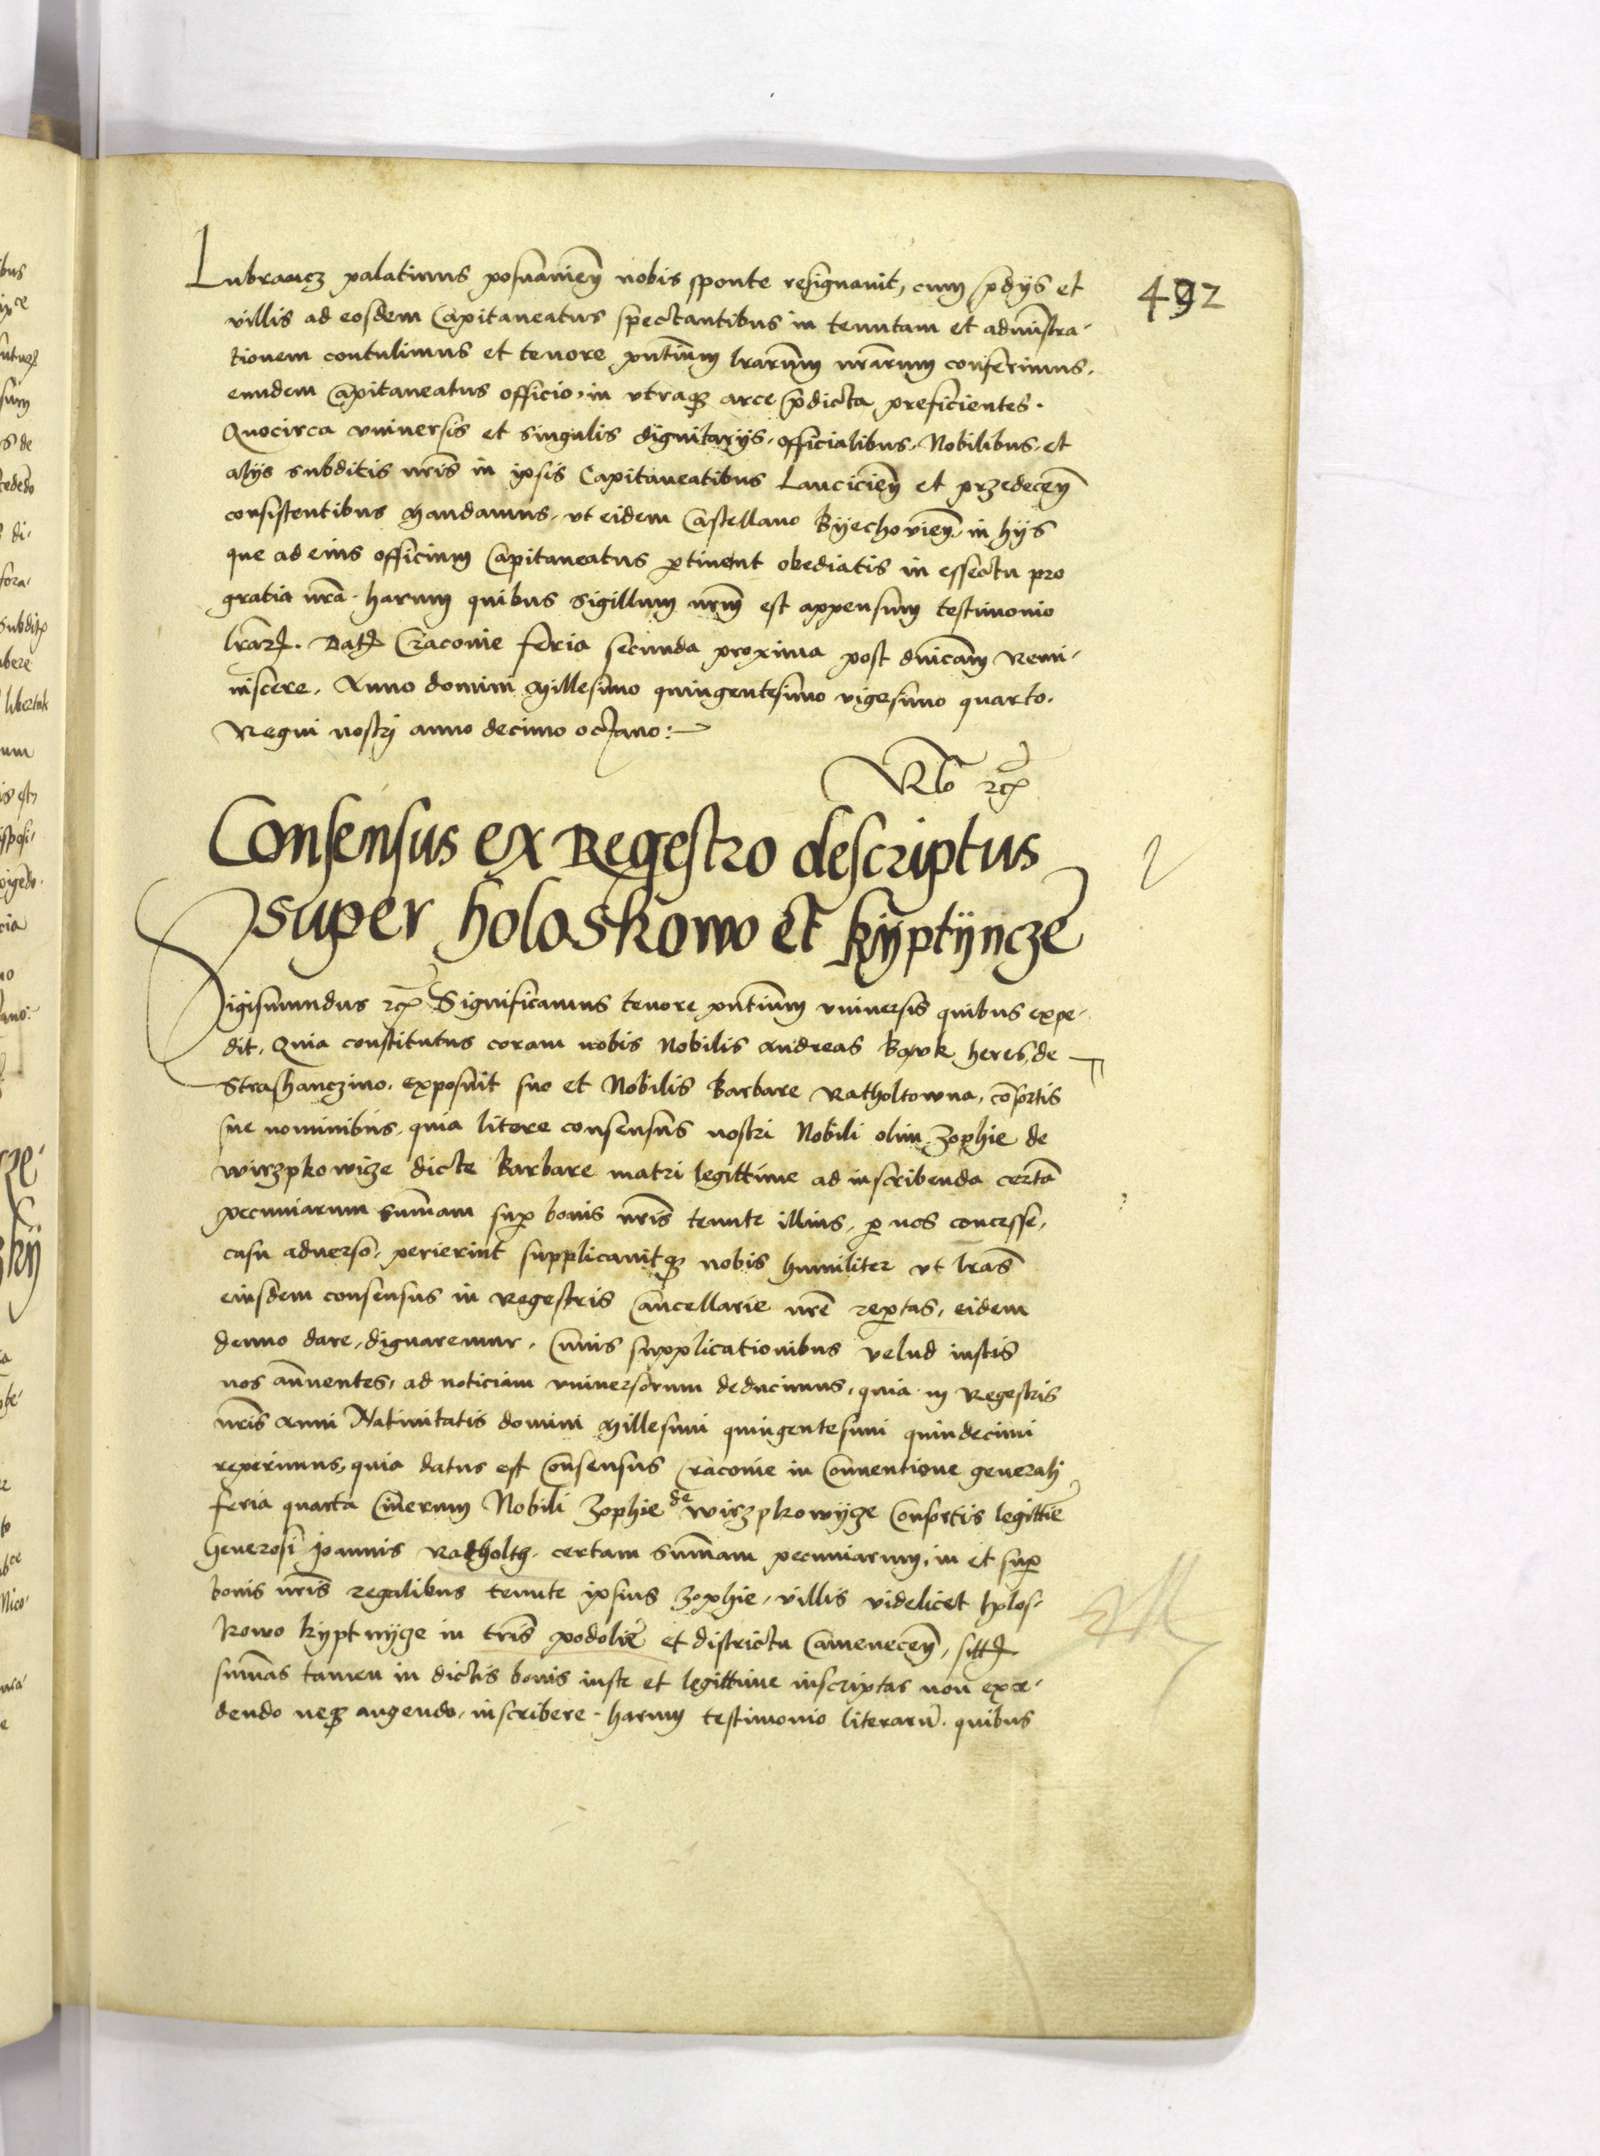 Lubrancz palatinus posnanien̄ nobis sponte resignauit, cum p̄dijs et
492
villis ad eosdem Capitaneatus spectantibus in tenutam et administra-
tionem contulimus et tenore pn̄tium lrarum nr̄arum conferimus.
eundem Capitaneatus officio, in vtraqȝ arce p̄dicta preficientes.
Quocirca vniuersis et singulis dignitarijs, officialibus, Nobilibus, et
alijs subditis nr̄is in ipsis Capitaneatibus Lancicien̄ et przedecen̄
consistentibus Mandamus, vt eidem Castellano Byechouien̄ in hijs
que ad eius officium Capitaneatus ꝑtinent obediatis in effectu pro
gratia nr̄a. harum quibus sigillum nr̄m est appensum testimonio
lrarꝝ. Datꝝ Cracouie feria secunda proxima post dn̄icam Remi-
niscere, Anno domini Millesimo quingentesimo vigesimo quarto.
Regni nostrj anno decimo octauo:
Consensus ex Regestro descriptus
super holoskowo et kÿptÿncze
Sigismundus rcꝭ Significamus tenore pn̄tium vniuersis quibus expe-
dit, Quia constitutus coram nobis Nobilis Andreas heres, de
exposuit suo et Nobilis Barbare Ratholtowna, cōsortis
sue nominibus, quia litere consensus nostri Nobili olim Zophie de
wirzpkowicze dicte Barbare matri legittime ad inscribenda certā
pecuniarum sum̄am suꝑ bonis nr̄is tenute illius, ꝑ nos concesse,
casu aduerso, perierint supplicauitqȝ nobis humiliter vt lras
eiusdem consensus in Regestris Cancellarie nr̄e reꝑtas, eidem
denuo dare, dignaremur, Cuius supplicationibus velud iustis
nos an̄uentes, ad noticiam vniuersorum deducimus, quia in Regestris
nr̄is Anni Natiuitatis domini Millesimi quingentesimi quindecimi
reperimus, quia datus est Consensus Cracouie in Conuentione generalj
feria quarta Cinerum Nobili Zophie de wirzpkowÿcze Consortis legittīe
Generosi Joannis Radholth, certam sum̄am pecuniarum, in et suꝑ
bonis nr̄is regalibus tenute ipsius Zophie, villis videlicet holos-
kowo kyptnÿcze in tr̄is podolie et districtu Camenecen̄, sittꝝ
sum̄as tamen in dictis bonis iuste et legittime inscriptas non exce-
dendo neqȝ augendo, inscribere. harum testimonio literarū. quibus